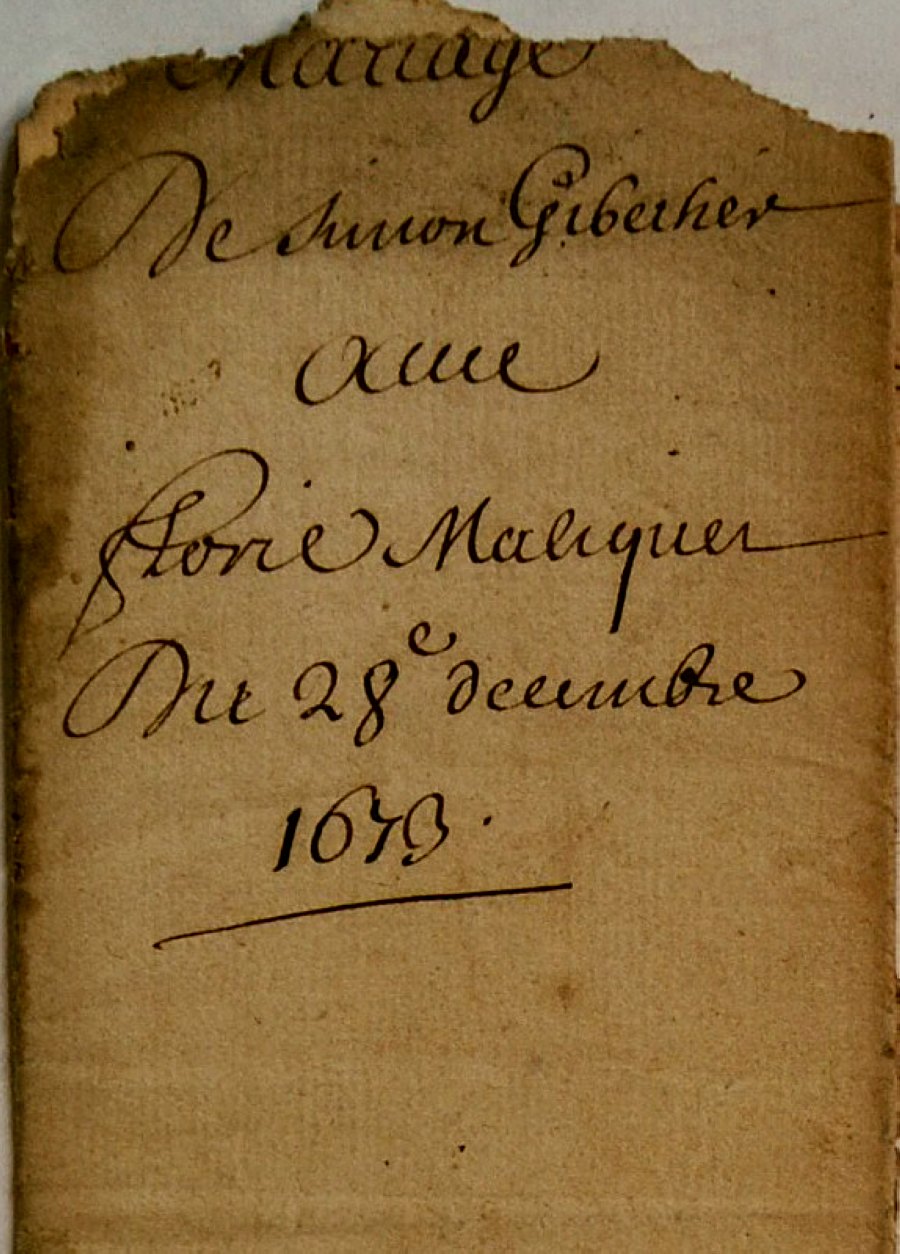 Mariage
De simon Giberher
aue
florie Maliquer
Du 28e decembre
1673.